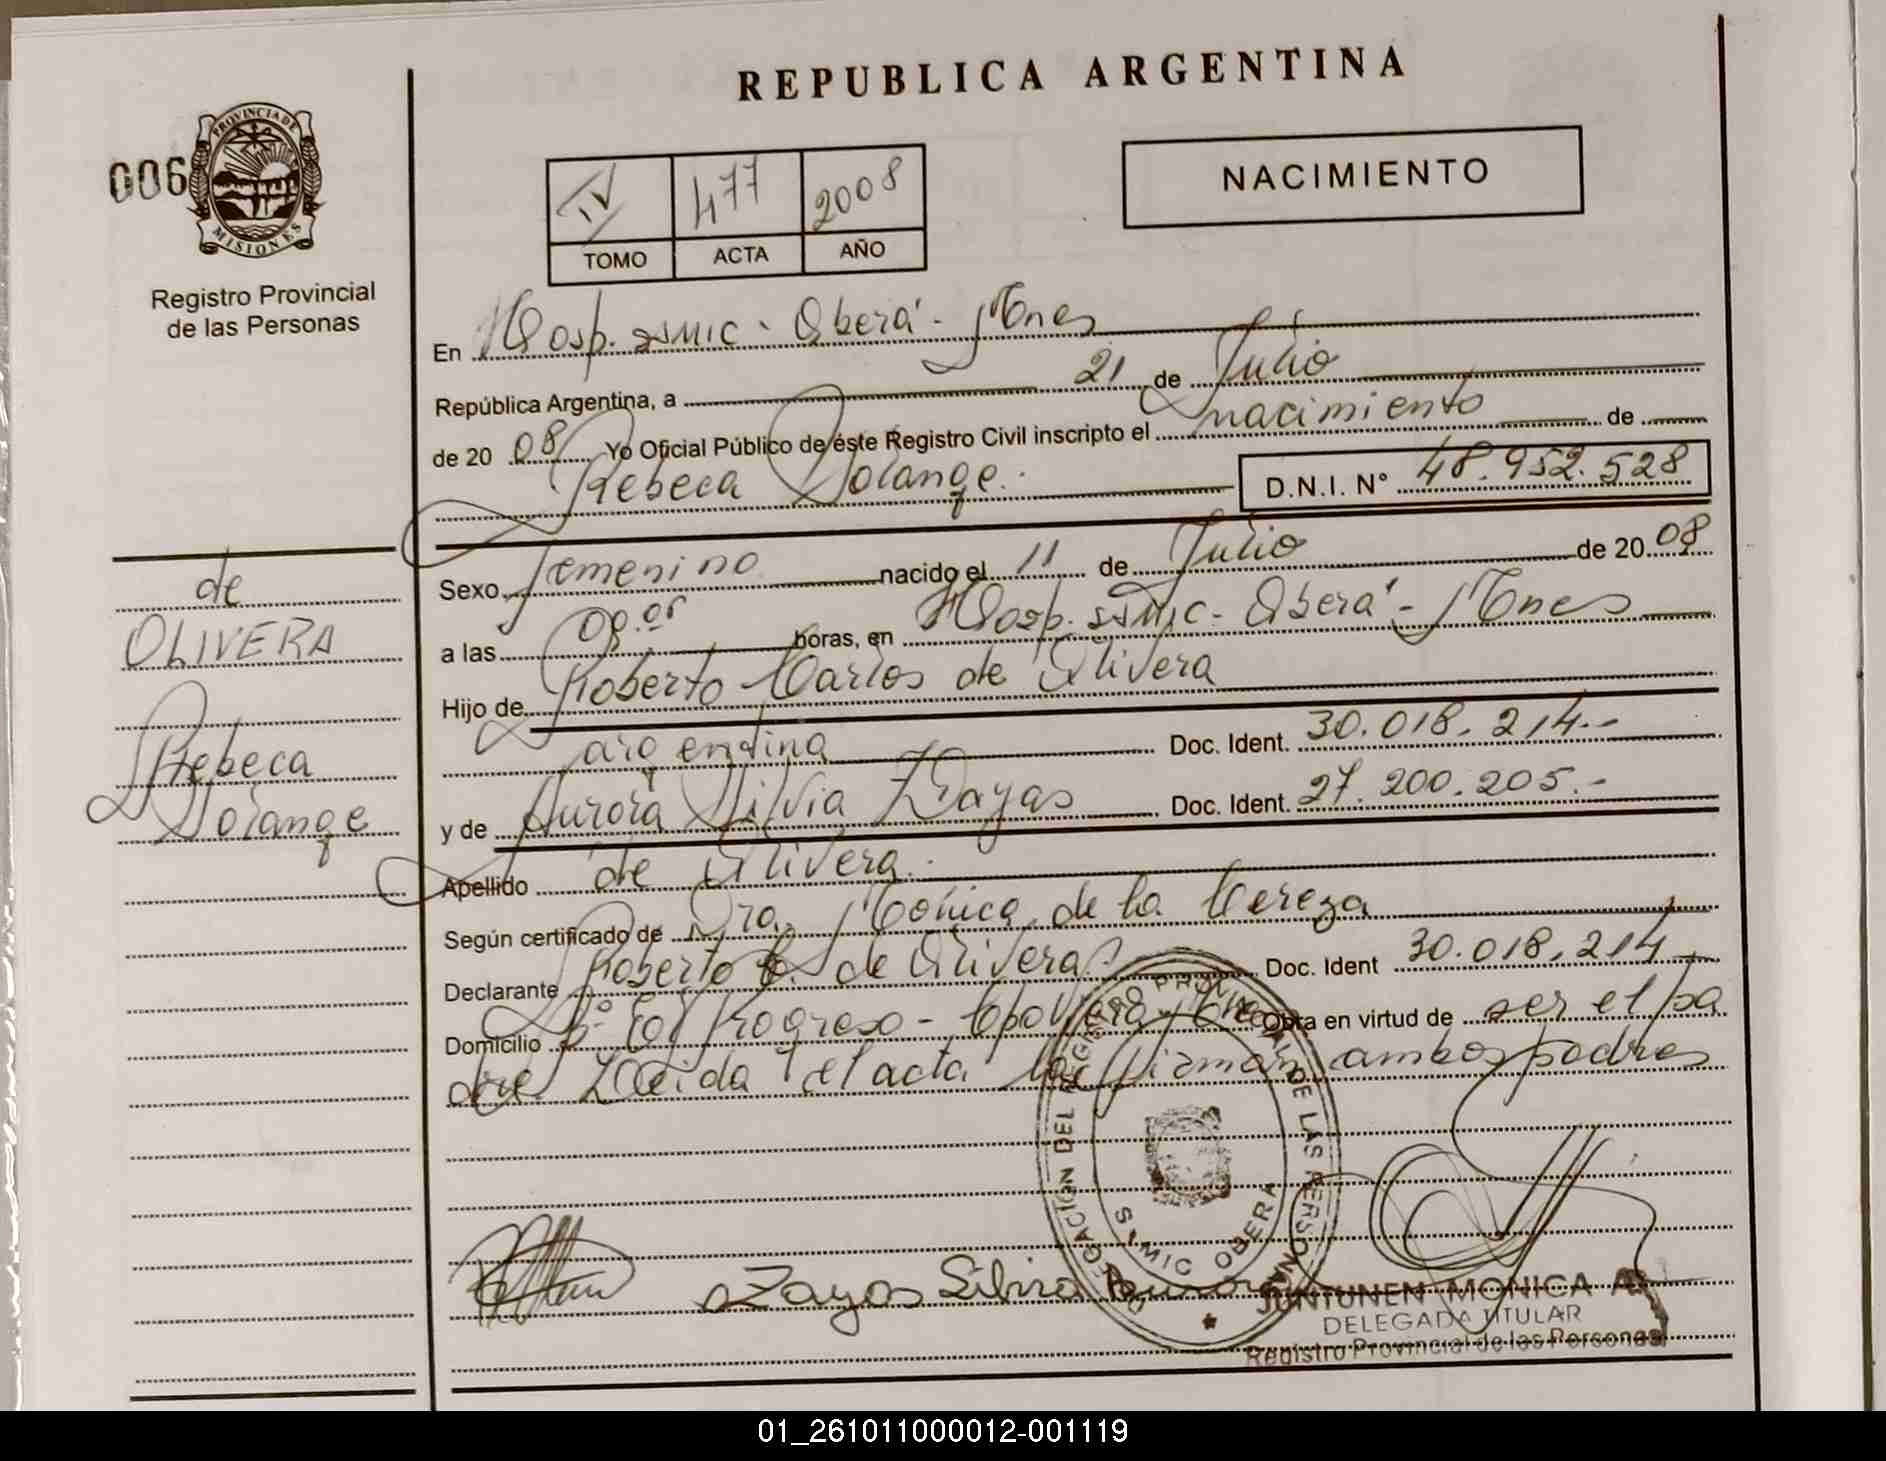 REPUBLICA ARGENTINA
006
PROVINCIA DE
MISIONES
Registro Provincial
de las Personas
IV 477 2008
TOMO ACTA AÑO
NACIMIENTO
En Hosp. SAMIC - Oberá - Mnes
República Argentina, a 21 de Julio
de 2008 Yo Oficial Público de éste Registro Civil inscripto el nacimiento de
Rebeca Solange. D.N.I. Nº 48.952.528
Sexo femenino nacido el 11 de Julio de 2008
a las 09.05 horas, en Hosp. SAMIC - Oberá - Mnes
Hijo de Roberto Carlos de Olivera
argentina Doc. Ident. 30.018.214.-
y de Aurora Silvia Zayas Doc. Ident. 27.200.205.-
Apellido de Olivera.
Según certificado de Dra. Mónica de la
Declarante Roberto C. de Olivera Doc. Ident 30.018.214
Domicilio Progreso - Obra en virtud de ser el pa
dre Leida el acta la firman ambos padres
de
OLIVERA
Rebeca
Solange
DELEGACION DEL REGISTRO PROVINCIAL DE LAS PERSONAS
SAMIC OBERA
Zayas Silvia Aurora
JUNTUNEN MONICA A.
DELEGADA TITULAR
Registro Provincial de las Personas
01_261011000012-001119